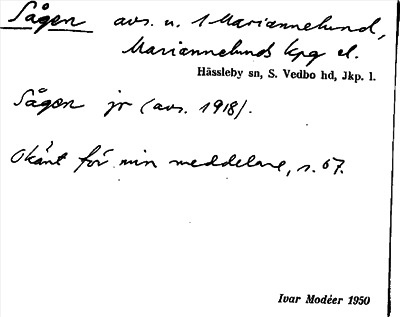 Sågen avs. u. 1 Mariannelund,
Mariannelunds kpg el.
Hässleby sn, S. Vedbo hd, Jkp. l.
Sågen jr (avs. 1918).
Okänt för min meddelare, s. 67.
Ivar Modéer 1950